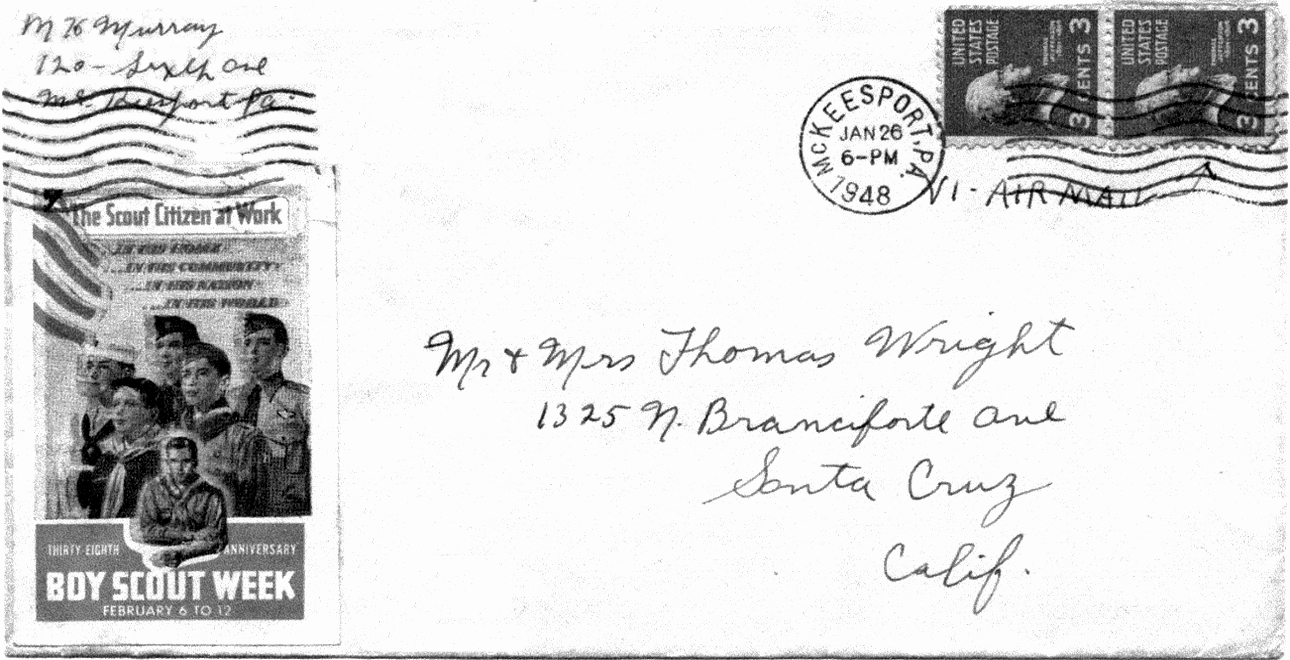 M H Murray
120 - Sixth Ave
Mc Keesport Pa.
The Scout Citizen at Work
...IN HIS HOME
...IN HIS COMMUNITY
...IN HIS NATION
...IN HIS WORLD
THIRTY-EIGHTH ANNIVERSARY
BOY SCOUT WEEK
FEBRUARY 6 TO 12
UNITED
STATES
POSTAGE
3 CENTS 3
UNITED
STATES
POSTAGE
3 CENTS 3
McKEESPORT, PA
JAN 26
6-PM
1948
VI - AIR MAIL
Mr & Mrs Thomas Wright
1325 N. Branciforte Ave
Santa Cruz
Calif.